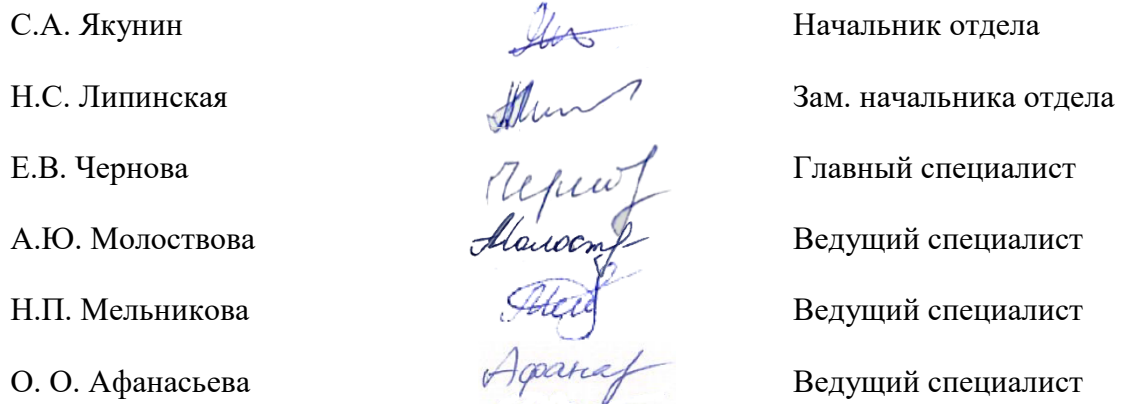 С.А. Якунин Начальник отдела
Н.С. Липинская Зам. начальника отдела
Е.В. Чернова Главный специалист
А.Ю. Молоствова Ведущий специалист
Н.П. Мельникова Ведущий специалист
О. О. Афанасьева Ведущий специалист